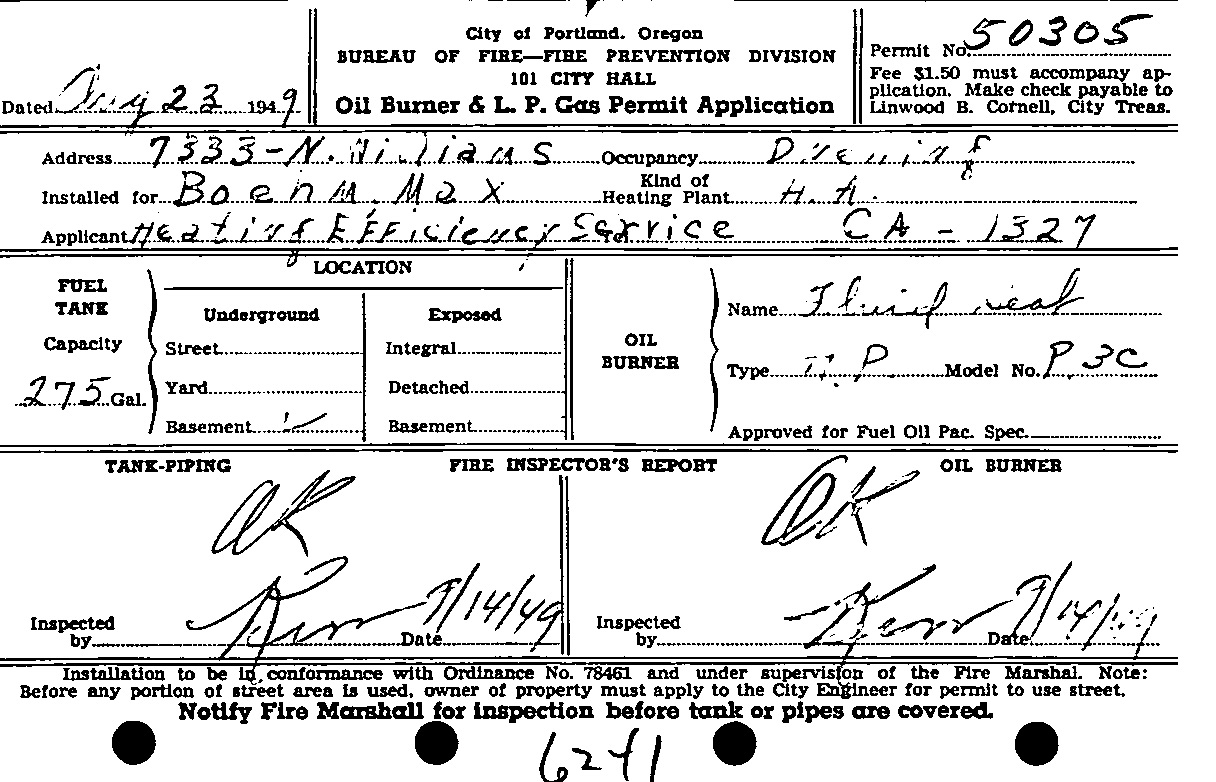 City of Portland. Oregon
BUREAU OF FIRE—FIRE PREVENTION DIVISION
101 CITY HALL
Oil Burner & L. P. Gas Permit Application
Permit No. 50305
Fee $1.50 must accompany ap-
plication. Make check payable to
Linwood B. Cornell, City Treas.
Dated Aug 23 1949
Address 7333-N. Williams Occupancy
Installed for Boehm. Max Kind of Heating Plant H.A.
Applicant Heating Efficiency Service CA - 1327
FUEL
TANK
Capacity
275 Gal.
LOCATION
Underground Exposed
Street Integral
Yard Detached
Basement Basement
OIL
BURNER
Name Fluid heat
Type P. Model No. P. 3C
Approved for Fuel Oil Pac. Spec.
TANK-PIPING FIRE INSPECTOR'S REPORT OIL BURNER
OK OK
Inspected by Date 9/14/49 Inspected by Date 9/14/49
Installation to be in conformance with Ordinance No. 78461 and under supervision of the Fire Marshal. Note:
Before any portion of street area is used, owner of property must apply to the City Engineer for permit to use street.
Notify Fire Marshall for inspection before tank or pipes are covered.
6241